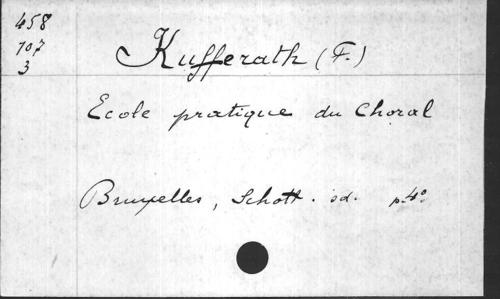 458
107
3
Kufferath (F.)
Ecole pratique du Choral
Bruxelles, Schott. sd. p. 4º